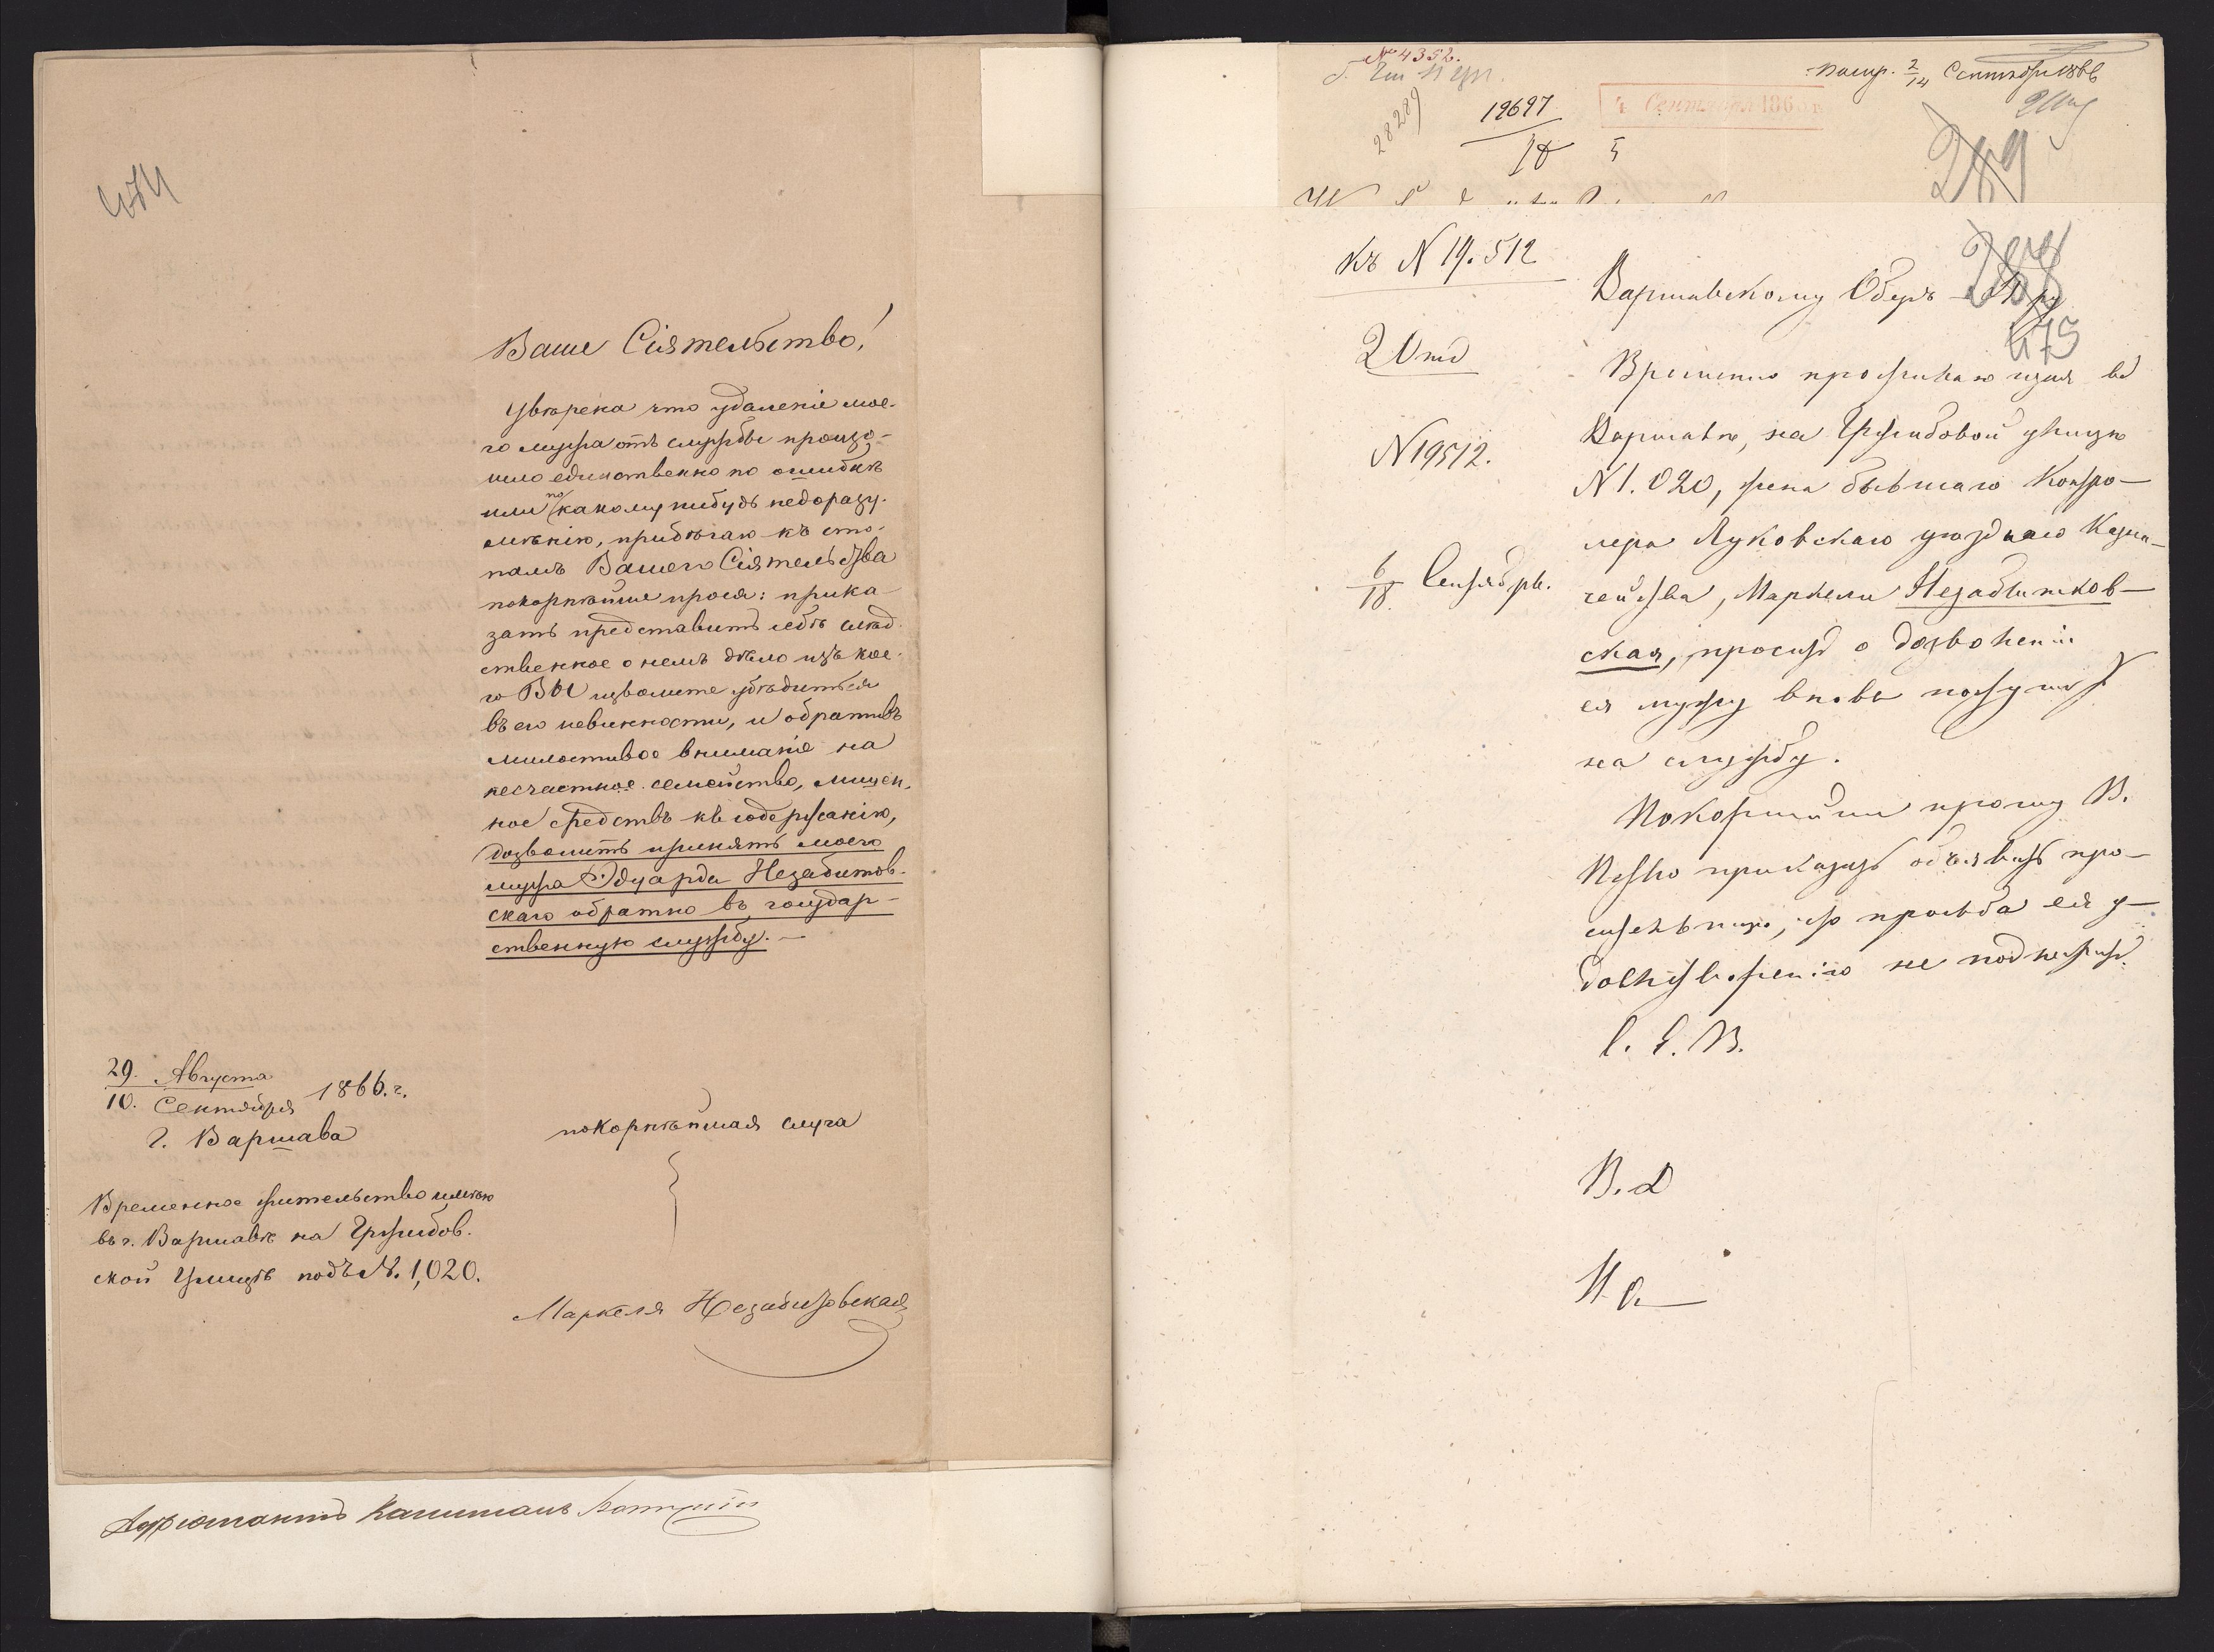 474
Ваше Сіятельство!
Увѣрена что удаленіе мое-
го мужа отъ службы произо-
шло единственно по ошибкѣ
или по какому нибудь недоразу-
мѣнію, прибѣгаю къ сто-
памъ Вашего Сіятельства
покорнѣйше прося: прика-
зать представить себѣ слѣд-
ственное о немъ дѣло изъ кое-
го ВЫ изволите убѣдиться
въ его невинности, и обративъ
милостивое вниманіе на
несчастное семейство, лишен-
ное средствъ къ содержанію,
дозволить принять моего
мужа Эдуарда Незабитов-
скаго обратно въ государ-
ственную службу.—
29. Августа
10. Сентября 1866. г.
г. Варшава
покорнѣйшая слуга
Временное жительство имѣю
въ г. Варшавѣ на Гржибов-
ской Улицѣ подъ №. 1,020.
Маркеля Незабитовская
Адъютантъ Капитанъ
№ 4352.
Получ. 2/14 Сентября 1866
28289
19697
4 Сентября 1866 г.
289
Къ N 19.512
288
Варшавскому Оберъ-
475
2 Отд
Временно проживающая въ
Варшавѣ, на Гржибовой улицѣ
N 19512.
N 1.020, жена бывшаго Контро-
лера Луковскаго уѣзднаго Казна-
6/18 Сентября.
чейства, Маркеля Незабитков-
ская, проситъ о дозволеніи
ея мужу вновь поступить
на службу.
Покорнѣйше прошу В.
приказать объявить про-
сительницѣ, что просьба ея у-
довлетворенію не подлежитъ.
С. Е. В.
В. Д
Н. О.